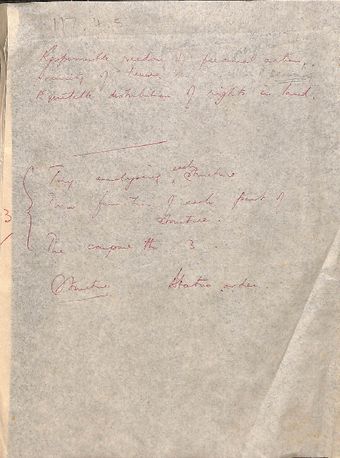 117.4.5
Responsible freedom of personal action,
Security of tenure,
Equitable distribution of rights in land.
Try analysing each structure
of each part of
structure.
The compare the 3
3
Structure Status order.